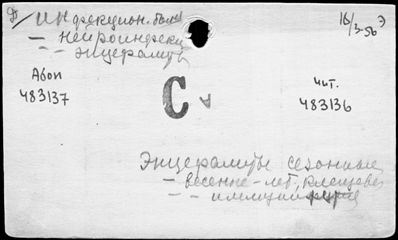 Инфекцион. бол
– нейроинфекц
– энцефалит
16/3-56 Э
Абоп
483137
С
чит.
483136
Энцефалиты сезонные
– весенне-лет., клещевой
– –